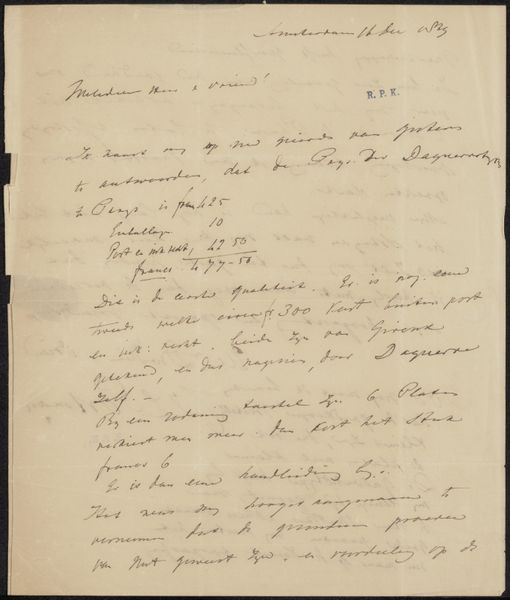 Amsterdam 16 Dec 1839
Weledele Heer & Vriend!
R. P. K.
Ik haast my op uw van gisteren
te antwoorden, dat de Prys der Daguerrotyp
te Parys is frcs 425
Emballage 10
Port en inkt 42 50
francs 477-50
Dit is de eerste qualiteit. Er is nog eene
tweede welke circa f 300 kost buiten port
en ink: recht. beide zyn van Giroux
getekend, en dus nagezien door Daguerre
zelf. -
By een toestel zyn 6 Platen
men meer dan kost het Stuk
francs 6
Er is dan eene handleiding by.
Het was my hoogst aangenaam te
vernemen dat de proeven
van Nut geweest zyn. en op de